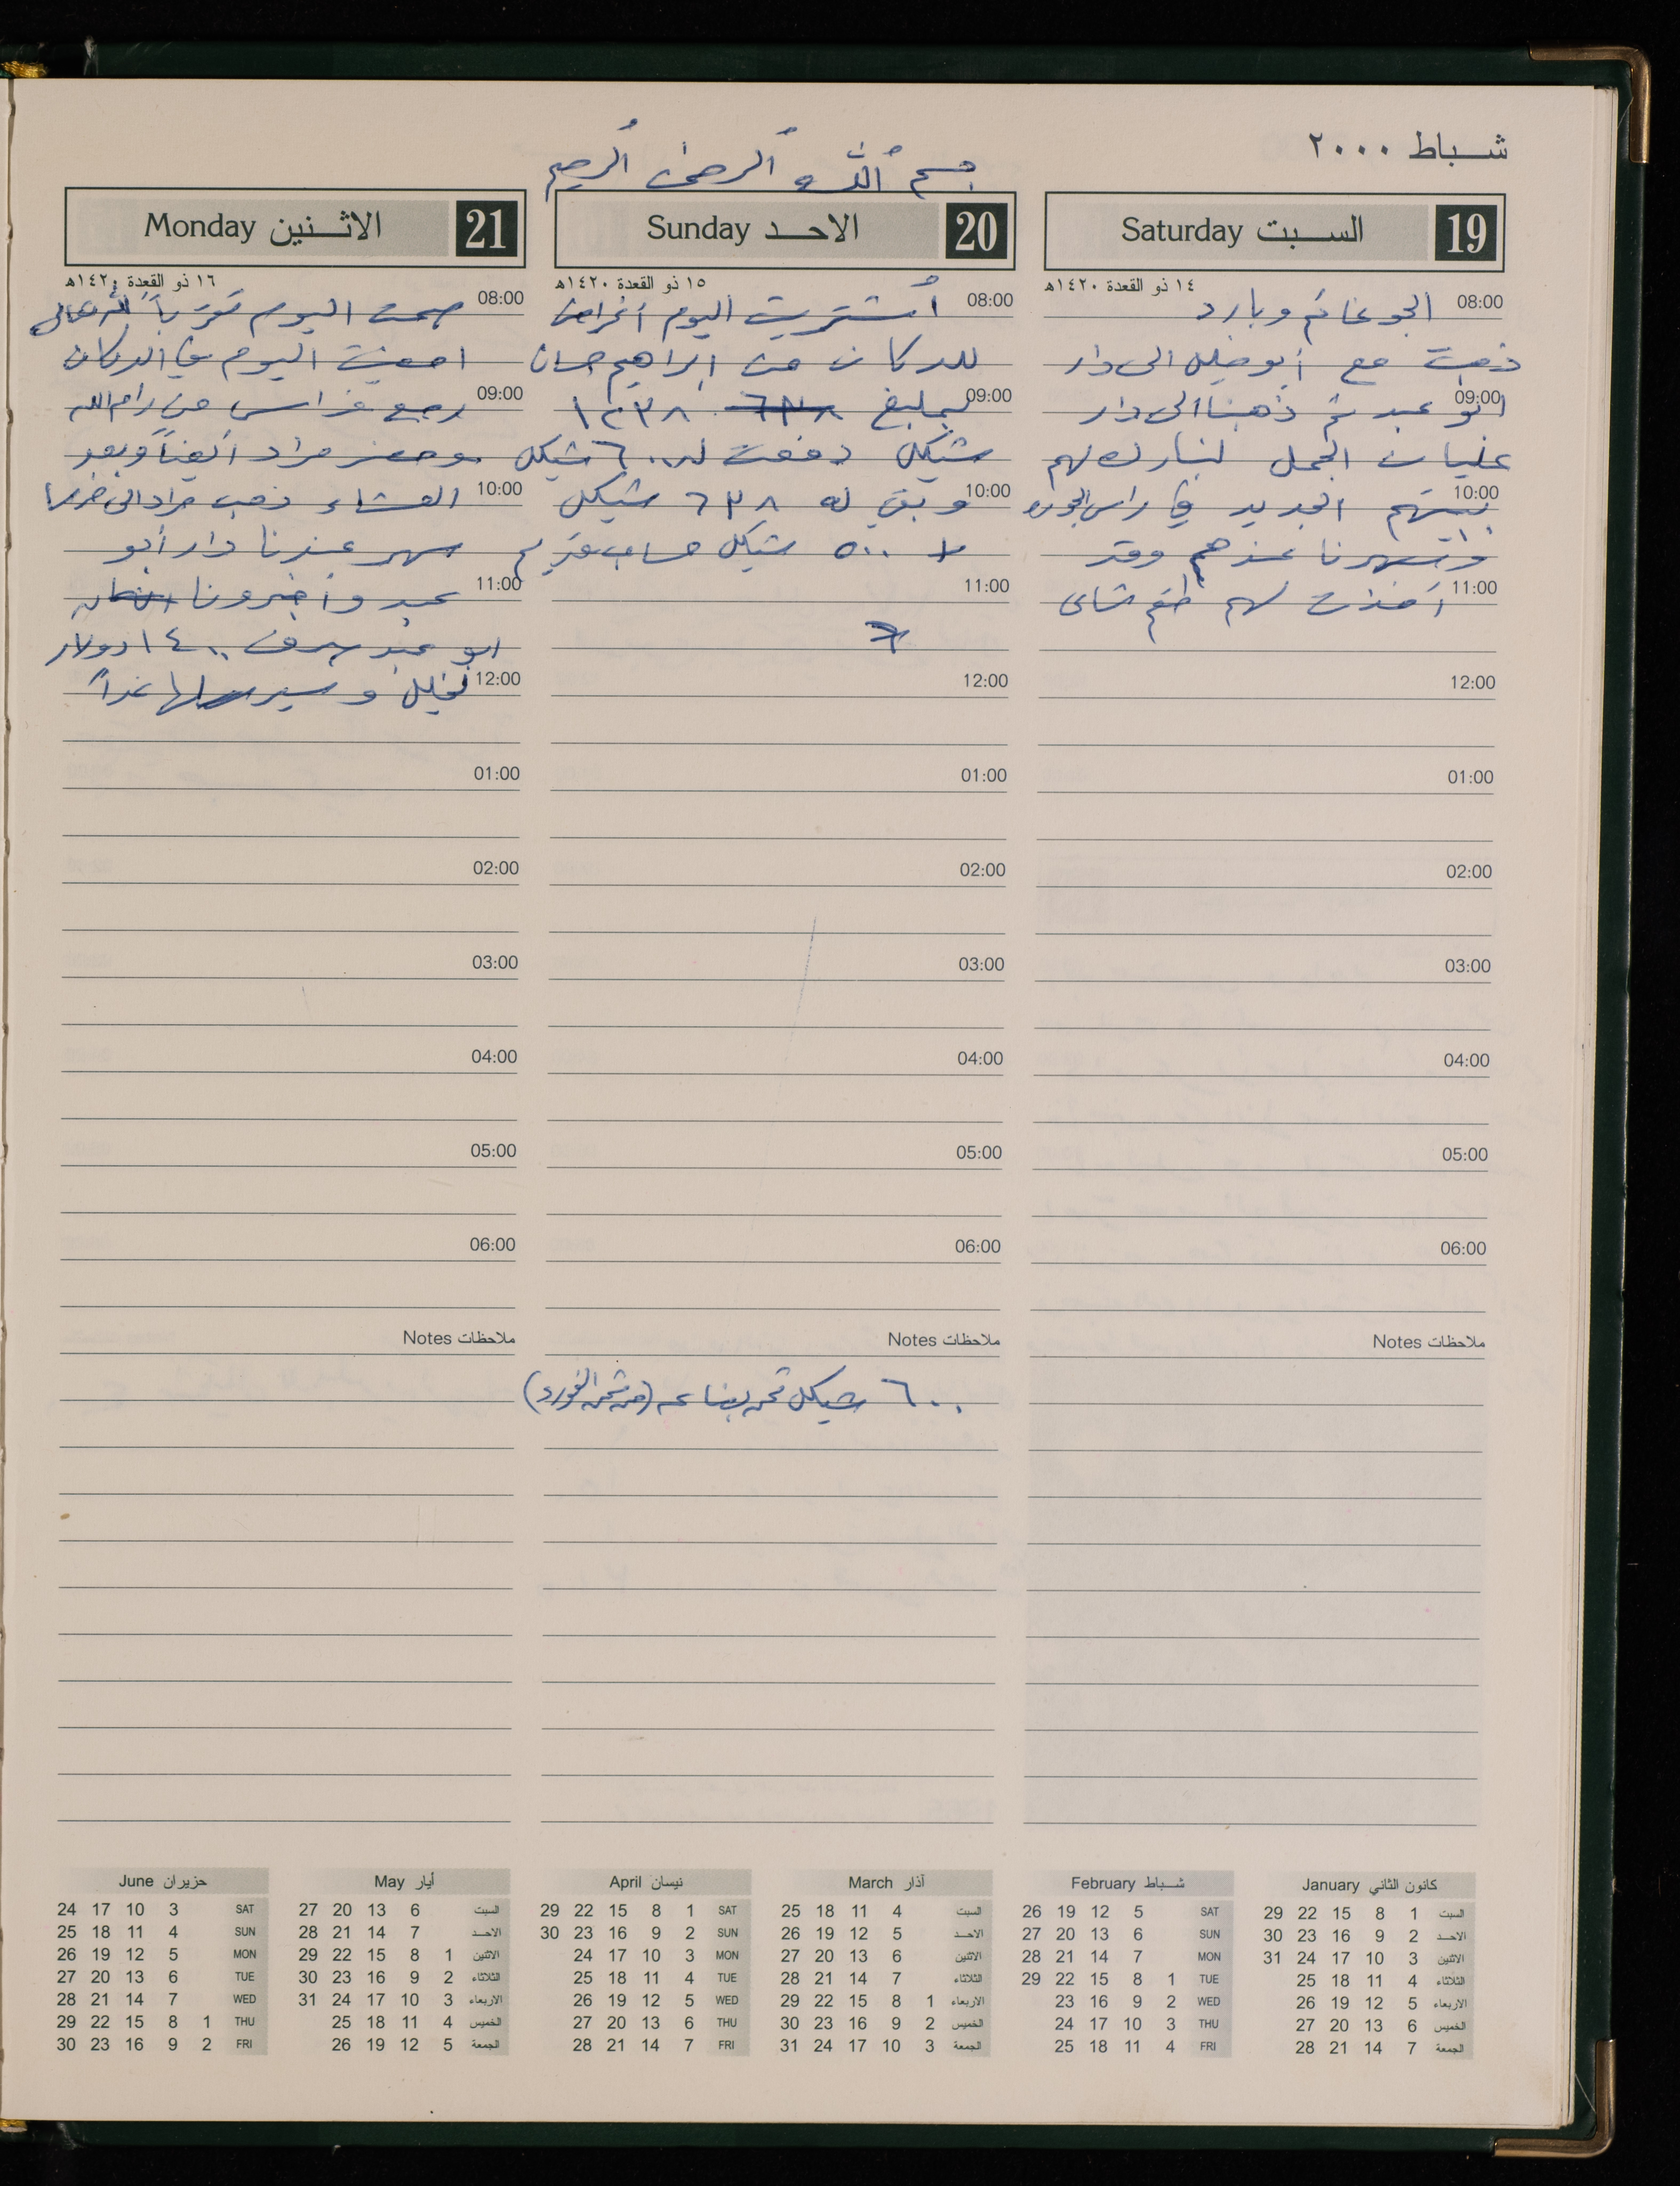 شباط ٢٠٠٠
بسم الله الرحمن الرحيم
السبت Saturday 19
١٤ ذو القعدة ١٤٢٠هـ
08:00 الجو غائم وبارد
ذهبت مع أبو خليل الى دار
09:00 ابو عبد ثم ذهبنا الى دار
عليان الجمل لنبارك لهم
10:00 ببيتهم الجديد في راس الجورة
وسهرنا عندهم وقد
11:00 أخذت لهم طقم شاي
12:00
01:00
02:00
03:00
04:00
05:00
06:00
ملاحظات Notes
الاحد Sunday 20
١٥ ذو القعدة ١٤٢٠هـ
08:00 أشتريت اليوم أغراض
للدكان من ابراهيم حسان
09:00 بمبلغ ٦٣٨ ١٢٣٨
شيكل دفعت له ٦٠٠ شيكل
10:00 وبقي له ٦٣٨ شيكل
+ ٥٠٠ شيكل حساب قديم
11:00
12:00
01:00
02:00
03:00
04:00
05:00
06:00
ملاحظات Notes
٦٠٠ شيكل ثمن بضاعه (من ثمن الفورد)
الاثنين Monday 21
١٦ ذو القعدة ١٤٢٠هـ
08:00 صمت اليوم تقرباً لله تعالى
امضيت اليوم في الدكان
09:00 رجع فراس من رام الله
وحضر مراد أيضاً وبعد
10:00 العشاء ذهب مراد الى
سهر عندنا دار أبو
11:00 عبد وأخبرونا ان
ابو عبد صرف ١٤٠٠ دولار
12:00 لخليل وسيرسلها غداً
01:00
02:00
03:00
04:00
05:00
06:00
ملاحظات Notes
كانون الثاني January
السبت 1 8 15 22 29
الاحد 2 9 16 23 30
الاثنين 3 10 17 24 31
الثلاثاء 4 11 18 25
الاربعاء 5 12 19 26
الخميس 6 13 20 27
الجمعة 7 14 21 28
شباط February
SAT 5 12 19 26
SUN 6 13 20 27
MON 7 14 21 28
TUE 1 8 15 22 29
WED 2 9 16 23
THU 3 10 17 24
FRI 4 11 18 25
آذار March
السبت 4 11 18 25
الاحد 5 12 19 26
الاثنين 6 13 20 27
الثلاثاء 7 14 21 28
الاربعاء 1 8 15 22 29
الخميس 2 9 16 23 30
الجمعة 3 10 17 24 31
نيسان April
SAT 1 8 15 22 29
SUN 2 9 16 23 30
MON 3 10 17 24
TUE 4 11 18 25
WED 5 12 19 26
THU 6 13 20 27
FRI 7 14 21 28
أيار May
السبت 6 13 20 27
الاحد 7 14 21 28
الاثنين 1 8 15 22 29
الثلاثاء 2 9 16 23 30
الاربعاء 3 10 17 24 31
الخميس 4 11 18 25
الجمعة 5 12 19 26
حزيران June
SAT 3 10 17 24
SUN 4 11 18 25
MON 5 12 19 26
TUE 6 13 20 27
WED 7 14 21 28
THU 1 8 15 22 29
FRI 2 9 16 23 30